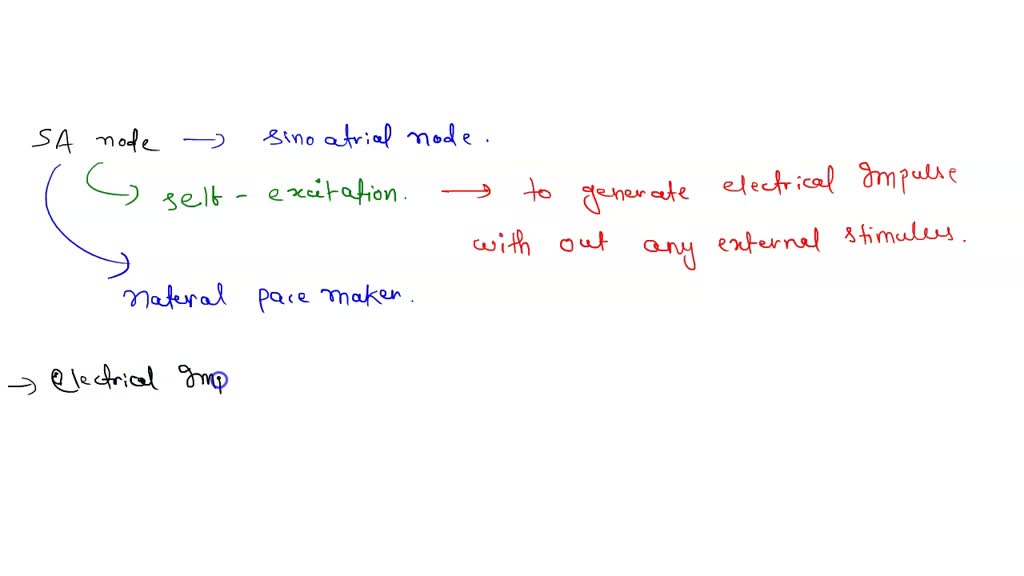 SA node → sino atrial node.
self - excitation. → to generate electrical Impulse
with out any external stimulus.
Natural pace maker.
→ Electrical Imp